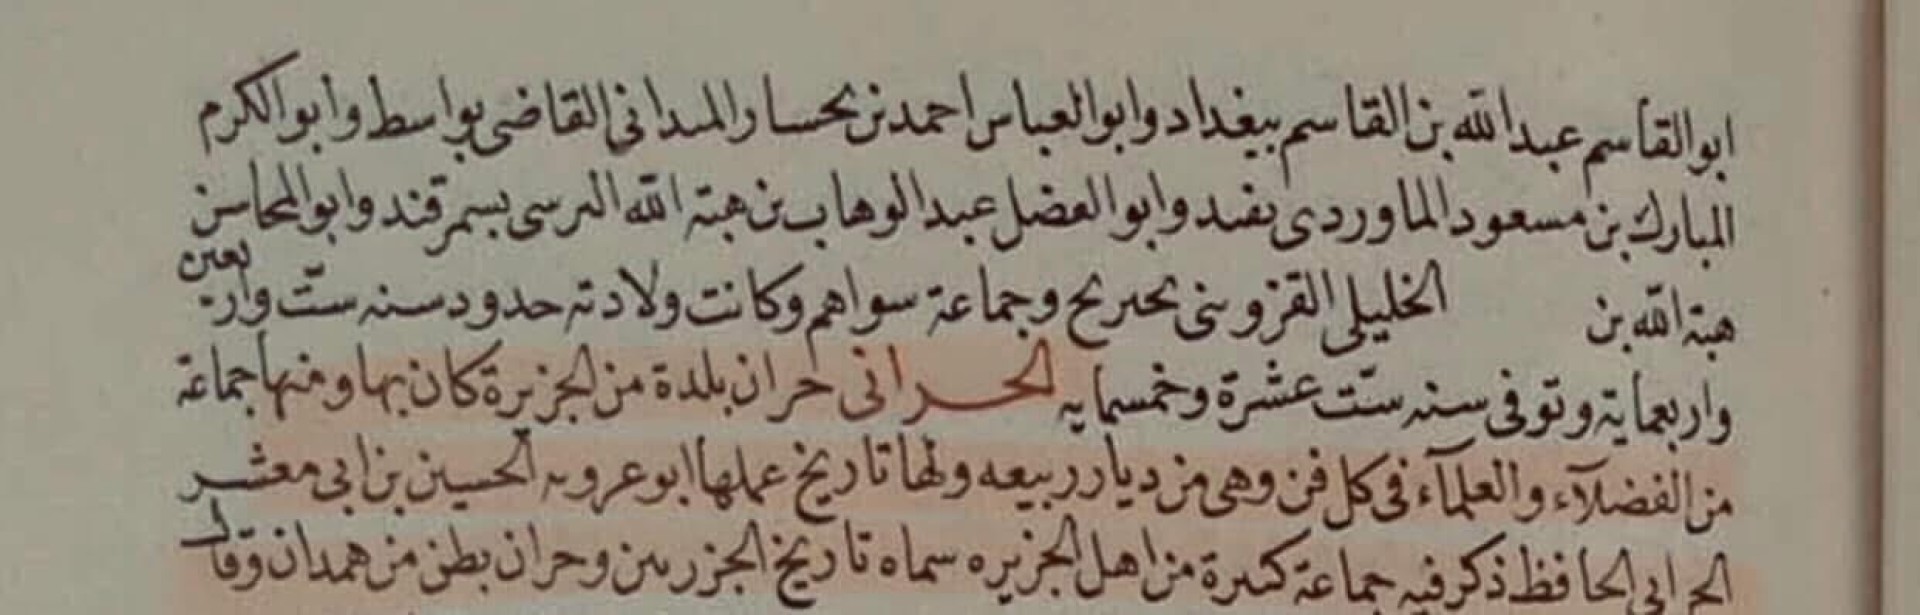 ابو القاسم عبد الله بن القاسم ببغداد وابو العباس احمد بن بحسار المندانى القاضى بواسط وابو الكرم
المبارك بن مسعود الماوردى وابو الفضل عبد الوهاب بن هبة الله النرسى بسمرقند وابو المحاسن
هبة الله بن الخليلى القزوينى وجماعة سواهم وكانت ولادته حدود سنه ستّ واربعين
واربعماية وتوفى سنه ستّ عشرة وخمسمايه الحرانى حران بلدة من الجزيرة كان بها ومنها جماعة
من الفضلآء والعلمآء فى كل فن وهى من ديار ربيعه ولها تاريخ عملها ابو عروبه الحسين بن ابى معشر
الحرانى الحافظ ذكر فيه جماعة كثيرة من اهل الجزيره سماه تاريخ الجزريين وحران بطن من همدان وقال